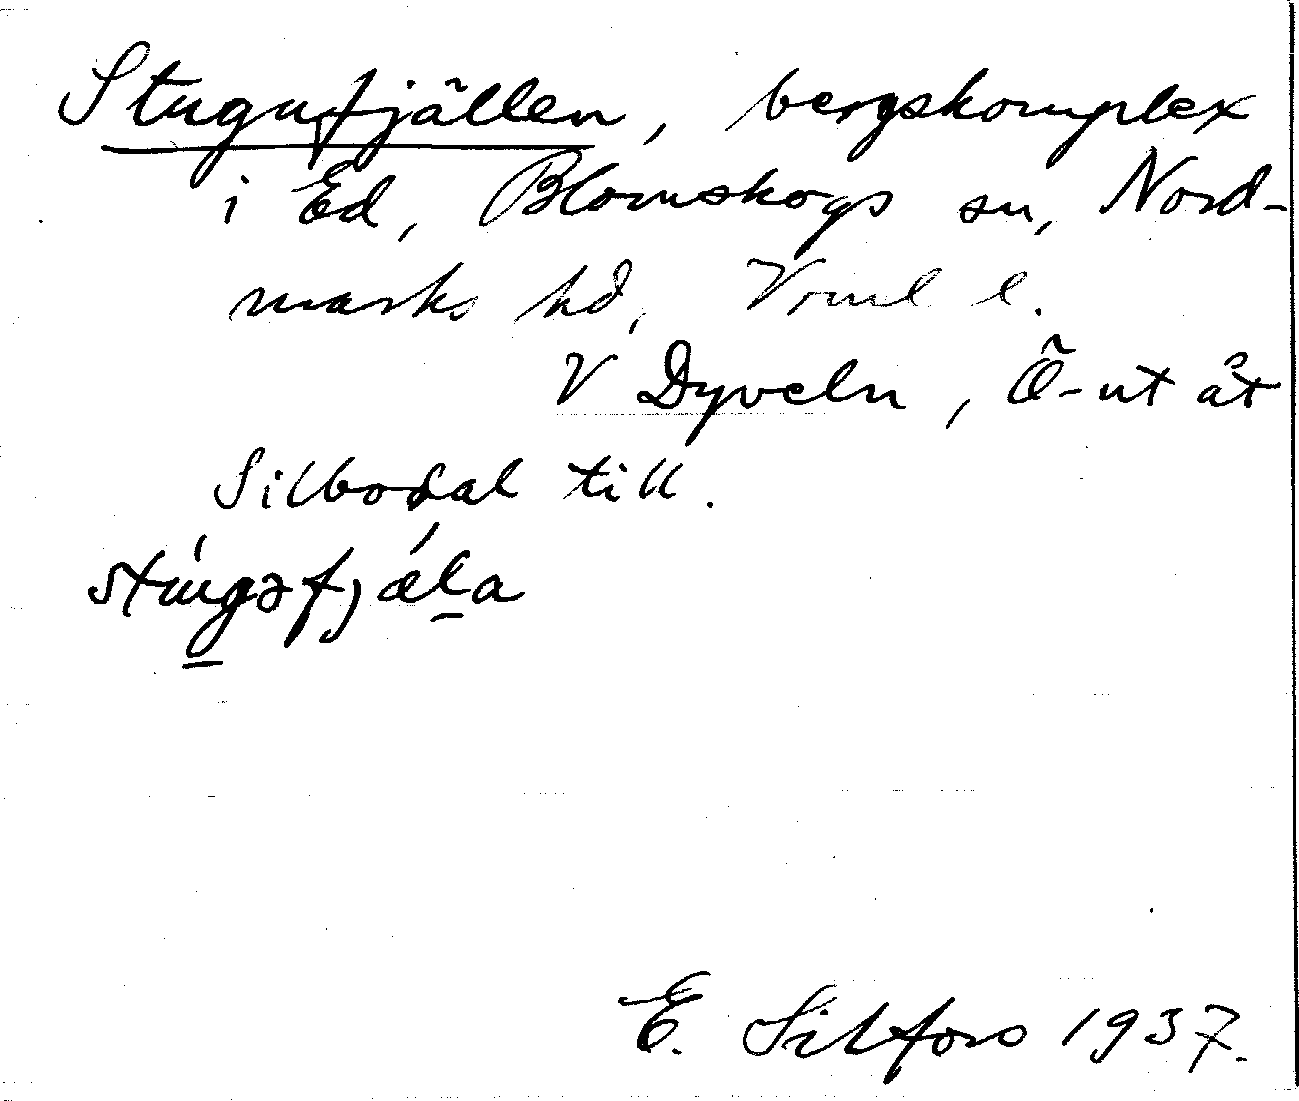 Stugufjällen, bergskomplex
i Ed, Blomskogs sn, Nord-
marks hd, Vrml l.
V Dyveln, Ö-ut åt
Silbodal till.
stúgəfjǽl̠a
E. Silfors 1937.